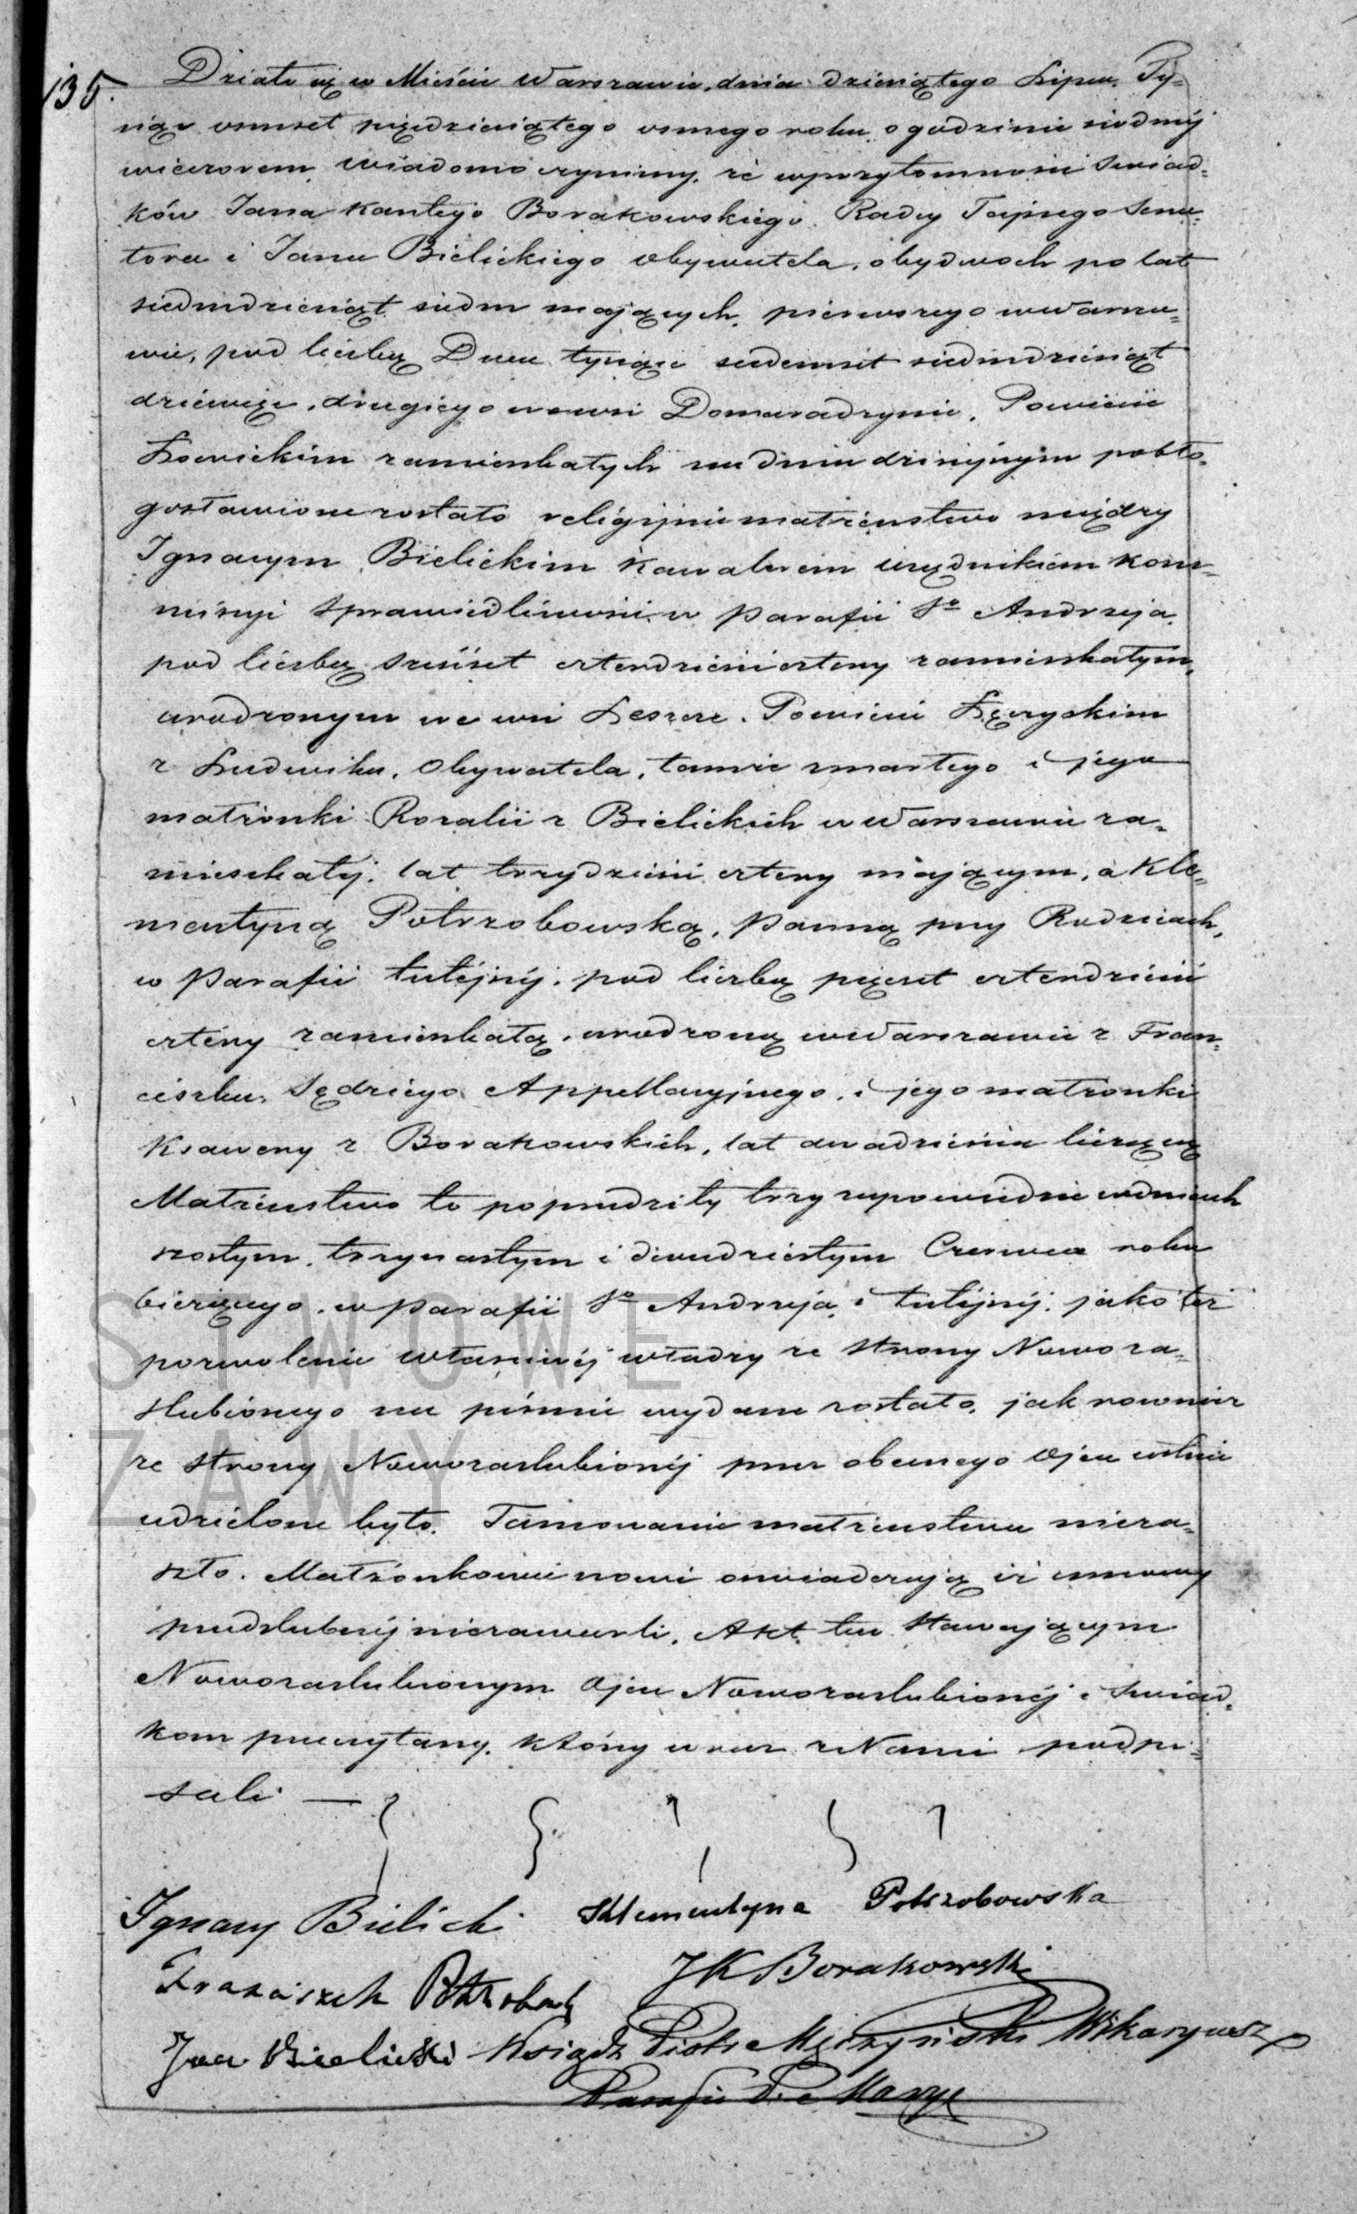 135.
Działo się w Mieście Warszawie, dnia dziesiątego Lipca Ty-
siąc osmset pięćdziesiątego osmego roku o godzinie siodméj
wieczorem, wiadomo czynimy, że w przytomności Świad-
ków Jana Kantego Borakowskiego Radcy Tajnego Sena-
tora i Jana Bielickiego obywatela, obydwoch po lat
siedmdziesiąt siedm mających, pierwszego w Warsza-
wie, pod liczbą Dwa tysiące siedemset siedmdziesiąt
dziewięć, drugiego we wsi Domaradzynie, Powiecie
Łowickim zamieszkałych na dniu dzisiejszym pobło-
gosławione zostało religijnie małżeństwo między
Ignacym Bielickim Kawalerem urzędnikiem Kom-
missyi Sprawiedliwości w Parafii Sgo Andrzeja
pod liczbą sześćset czterdzieści cztery zamieszkałym,
urodzonym we wsi Leszcze, Powiecie Łęczyckim
z Ludwika, Obywatela, tamże zmarłego i jego
małżonki Rozalii z Bielickich w Warszawie za-
mieszkałéj, lat trzydzieści cztery mającym, a Kle-
mentyną Potrzobowską, Panną przy Rodzicach,
w Parafii tutejszéj, pod liczbą pięćset czterdzieści
cztery zamieszkałą, urodzoną w Warszawie z Fran-
ciszka, Sędziego Appellacyjnego, i jego małżonki
Ksawery z Borakowskich, lat dwadzieścia liczącą
Małżeństwo to poprzedziły trzy zapowiedzie w dniach
szostym, trzynastym i dwudziestym Czerwca roku
bieżącego, w Parafii Sgo Andrzeja i tutejszéj, jako też
pozwolenie właściwéj władzy ze strony Nowoza-
ślubionego na piśmie wydane zostało, jak rownież
ze strony Nowozaslubionéj przez obecnego Ojca ustnie
udzielone było. Tamowanie małżeństwa nieza-
szło. Małżonkowie nowi oswiadczają iż umowy
przedslubnéj niezawarli, Akt ten Stawającym
Nowozaslubionym Ojcu Nowozaslubionéj i Swiad-
kom przeczytany, który wraz z Nami podpi-
sali —
Ignacy Bielicki Klementyna Potrzobowska
Franciszek Potrzobowski JK Borakowski
Jan Bielicki Ksiądz Piotr Wikaryusz
Parafii P. Maryi